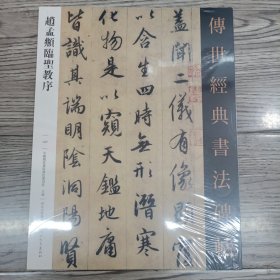 傳世經典書法碑帖
蓋聞二儀有像
以含生四時無形潛寒
化物是以窺天鑑地庸
皆識其端明陰洞陽賢
趙孟頫臨聖教序